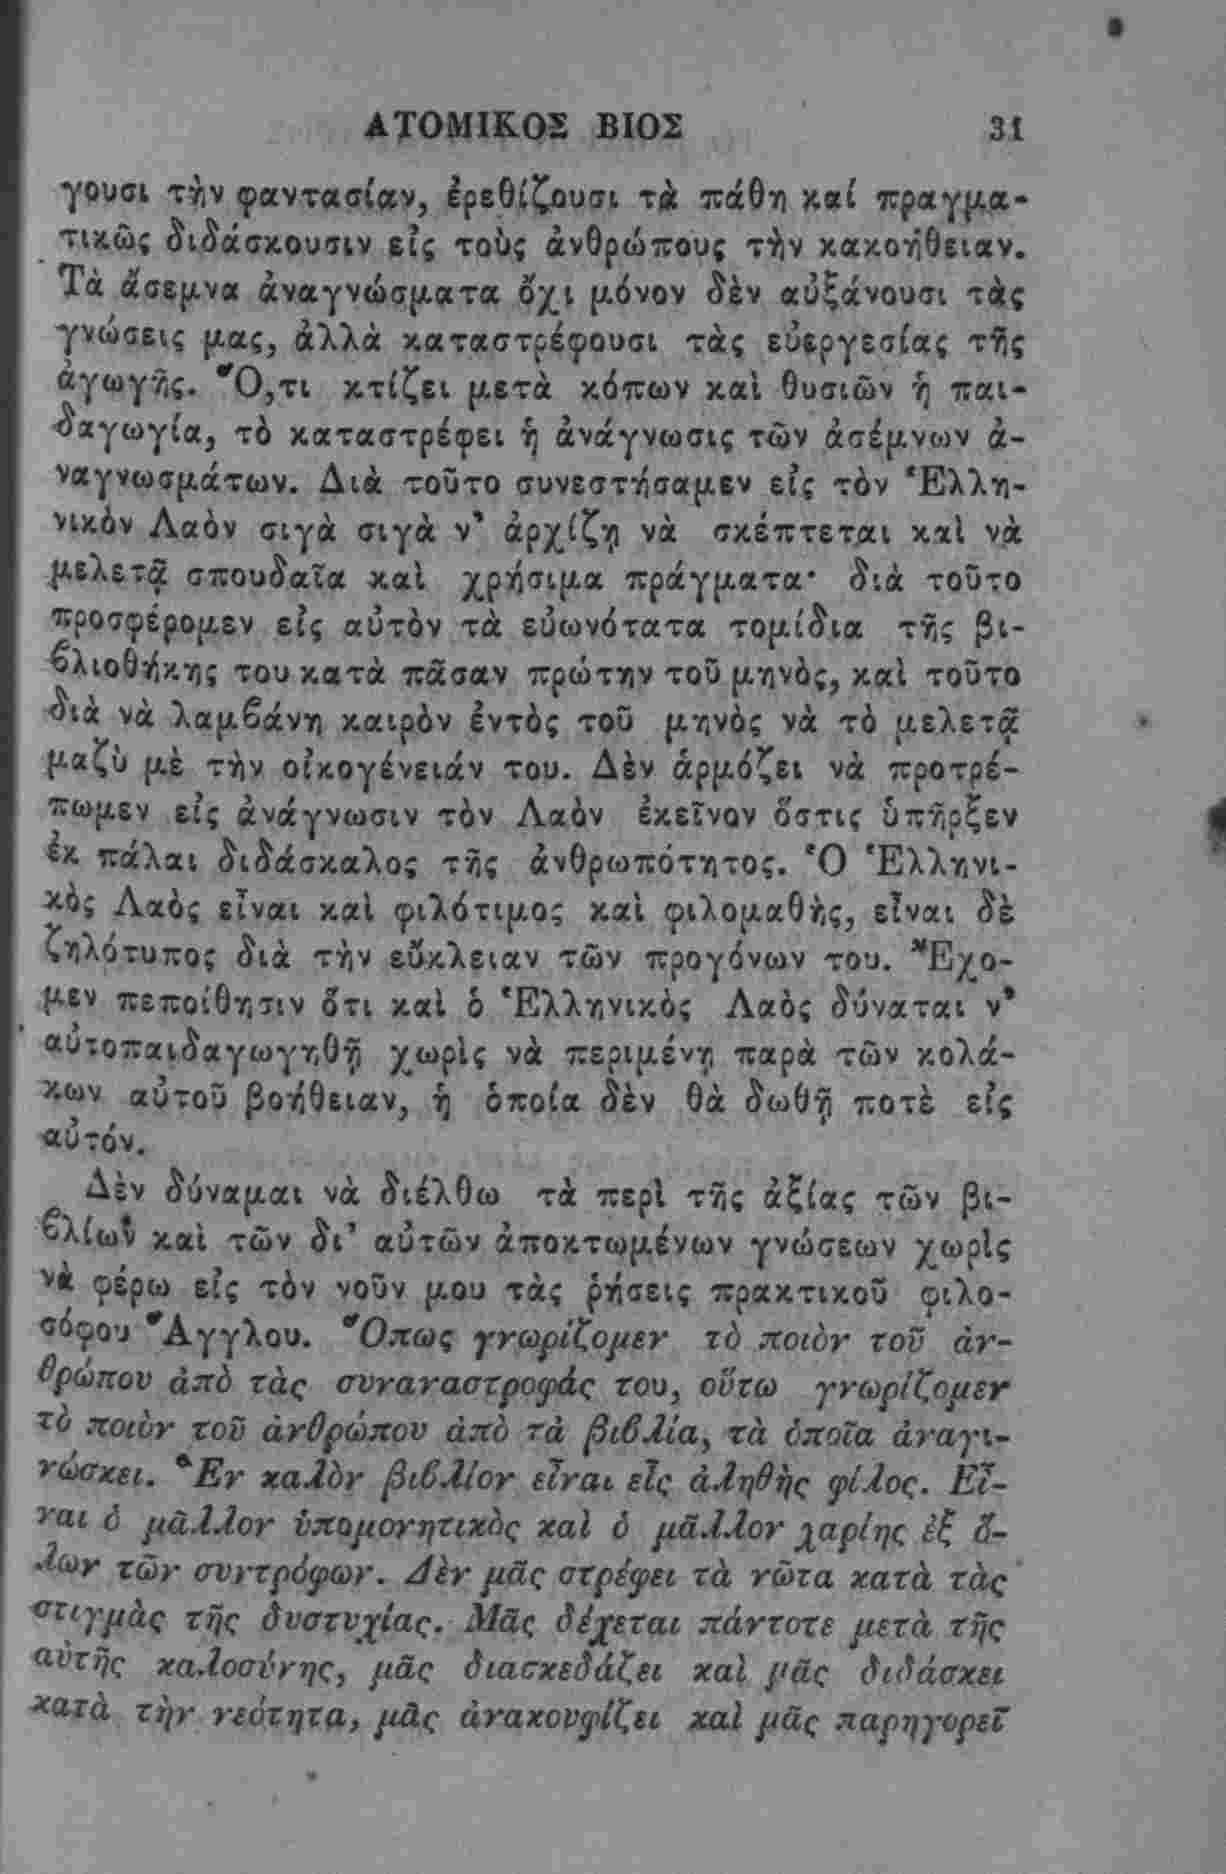 ΑΤΟΜΙΚΟΣ ΒΙΟΣ 31
γουσι τὴν φαντασίαν, ἐρεθίζουσι τὰ πάθη καί πραγμα-
τικῶς διδάσκουσιν εἰς τοὺς ἀνθρώπους τὴν κακοήθειαν.
Τὰ ἄσεμνα ἀναγνώσματα ὄχι μόνον δὲν αὐξάνουσι τὰς
γνώσεις μας, ἀλλὰ καταστρέφουσι τὰς εὐεργεσίας τῆς
ἀγωγῆς. Ὅ,τι κτίζει μετὰ κόπων καὶ θυσιῶν ἡ παι-
δαγωγία, τὸ καταστρέφει ἡ ἀνάγνωσις τῶν ἀσέμνων ἀ-
ναγνωσμάτων. Διὰ τοῦτο συνεστήσαμεν εἰς τὸν Ἑλλη-
νικὸν Λαὸν σιγὰ σιγὰ ν' ἀρχίζῃ νὰ σκέπτεται καὶ νὰ
μελετᾷ σπουδαῖα καὶ χρήσιμα πράγματα· διὰ τοῦτο
προσφέρομεν εἰς αὐτὸν τὰ εὐωνότατα τομίδια τῆς βι-
ϐλιοθήκης του κατὰ πᾶσαν πρώτην τοῦ μηνὸς, καὶ τοῦτο
διὰ νὰ λαμϐάνη καιρὸν ἐντὸς τοῦ μηνὸς νὰ τὸ μελετᾷ
μαζὺ μὲ τὴν οἰκογένειάν του. Δὲν ἁρμόζει νὰ προτρέ-
πωμεν εἰς ἀνάγνωσιν τὸν Λαὸν ἐκεῖνον ὅστις ὑπῆρξεν
ἐκ πάλαι διδάσκαλος τῆς ἀνθρωπότητος. Ὁ Ἑλληνι-
κὸς Λαὸς εἶναι καὶ φιλότιμος καὶ φιλομαθὴς, εἶναι δὲ
ζηλότυπος διὰ τὴν εὔκλειαν τῶν προγόνων του. Ἔχο-
μεν πεποίθησιν ὅτι καὶ ὁ Ἑλληνικὸς Λαὸς δύναται ν'
αὐτοπαιδαγωγηθῇ χωρὶς νὰ περιμένῃ παρὰ τῶν κολά-
κων αὐτοῦ βοήθειαν, ἡ ὁποία δὲν θὰ δωθῇ ποτὲ εἰς
αὐτόν.
Δὲν δύναμαι νὰ διέλθω τὰ περὶ τῆς ἀξίας τῶν βι-
ϐλίων καὶ τῶν δι' αὐτῶν ἀποκτωμένων γνώσεων χωρὶς
νὰ φέρω εἰς τὸν νοῦν μου τὰς ῥήσεις πρακτικοῦ φιλο-
σόφου Ἄγγλου. Ὅπως γνωρίζομεν τὸ ποιὸν τοῦ ἀν-
θρώπου ἀπὸ τὰς συναναστροφάς του, οὕτω γνωρίζομεν
τὸ ποιὸν τοῦ ἀνθρώπου ἀπὸ τὰ βιϐλία, τὰ ὁποῖα ἀναγι-
νώσκει. Ἓν καλὸν βιϐλίον εἶναι εἷς ἀληθὴς φίλος. Εἶ-
ναι ὁ μᾶλλον ὑπομονητικὸς καὶ ὁ μᾶλλον χαρίης ἐξ ὅ-
λων τῶν συντρόφων. Δὲν μᾶς στρέφει τὰ νῶτα κατὰ τὰς
στιγμὰς τῆς δυστυχίας. Μᾶς δέχεται πάντοτε μετὰ τῆς
αὐτῆς καλοσύνης, μᾶς διασκεδάζει καὶ μᾶς διδάσκει
κατὰ τὴν νεότητα, μᾶς ἀνακουφίζει καὶ μᾶς παρηγορεῖ